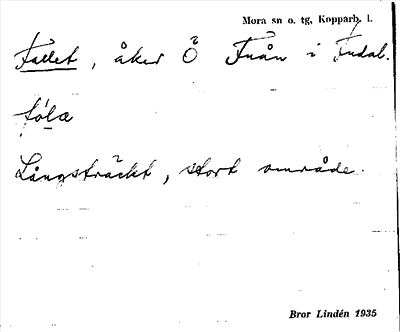 Mora sn o. tg, Kopparb. l.
Fallet, åker Ö Fuån i Fudal.
fólæ
Långsträckt, stort område.
Bror Lindén 1935